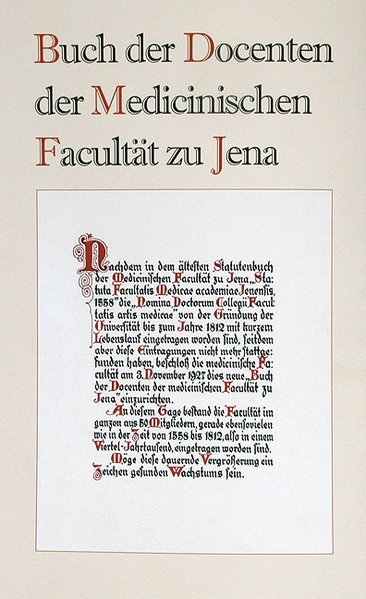 Buch der Docenten
der Medicinischen
Facultät zu Jena
Nachdem in dem ältesten Statutenbuch
der Medicinischen Facultät zu Jena „Sta-
tuta Facultatis Medicae academiae Jenensis,
1558" die „Nomina Doctorum Collegii Facul-
tatis artis medicae" von der Gründung der
Universität bis zum Jahre 1812 mit kurzem
Lebenslauf eingetragen worden sind, seitdem
aber diese Eintragungen nicht mehr stattge-
funden haben, beschloß die medicinische Fa-
cultät am 3. November 1927 dies neue „Buch
der Docenten der medicinischen Facultät zu
Jena" einzurichten.
An diesem Tage bestand die Facultät im
ganzen aus 59 Mitgliedern, gerade ebensovielen
wie in der Zeit von 1558 bis 1812, also in einem
Viertel-Jahrtausend, eingetragen worden sind.
Möge diese dauernde Vergrößerung ein
Zeichen gesunden Wachstums sein.